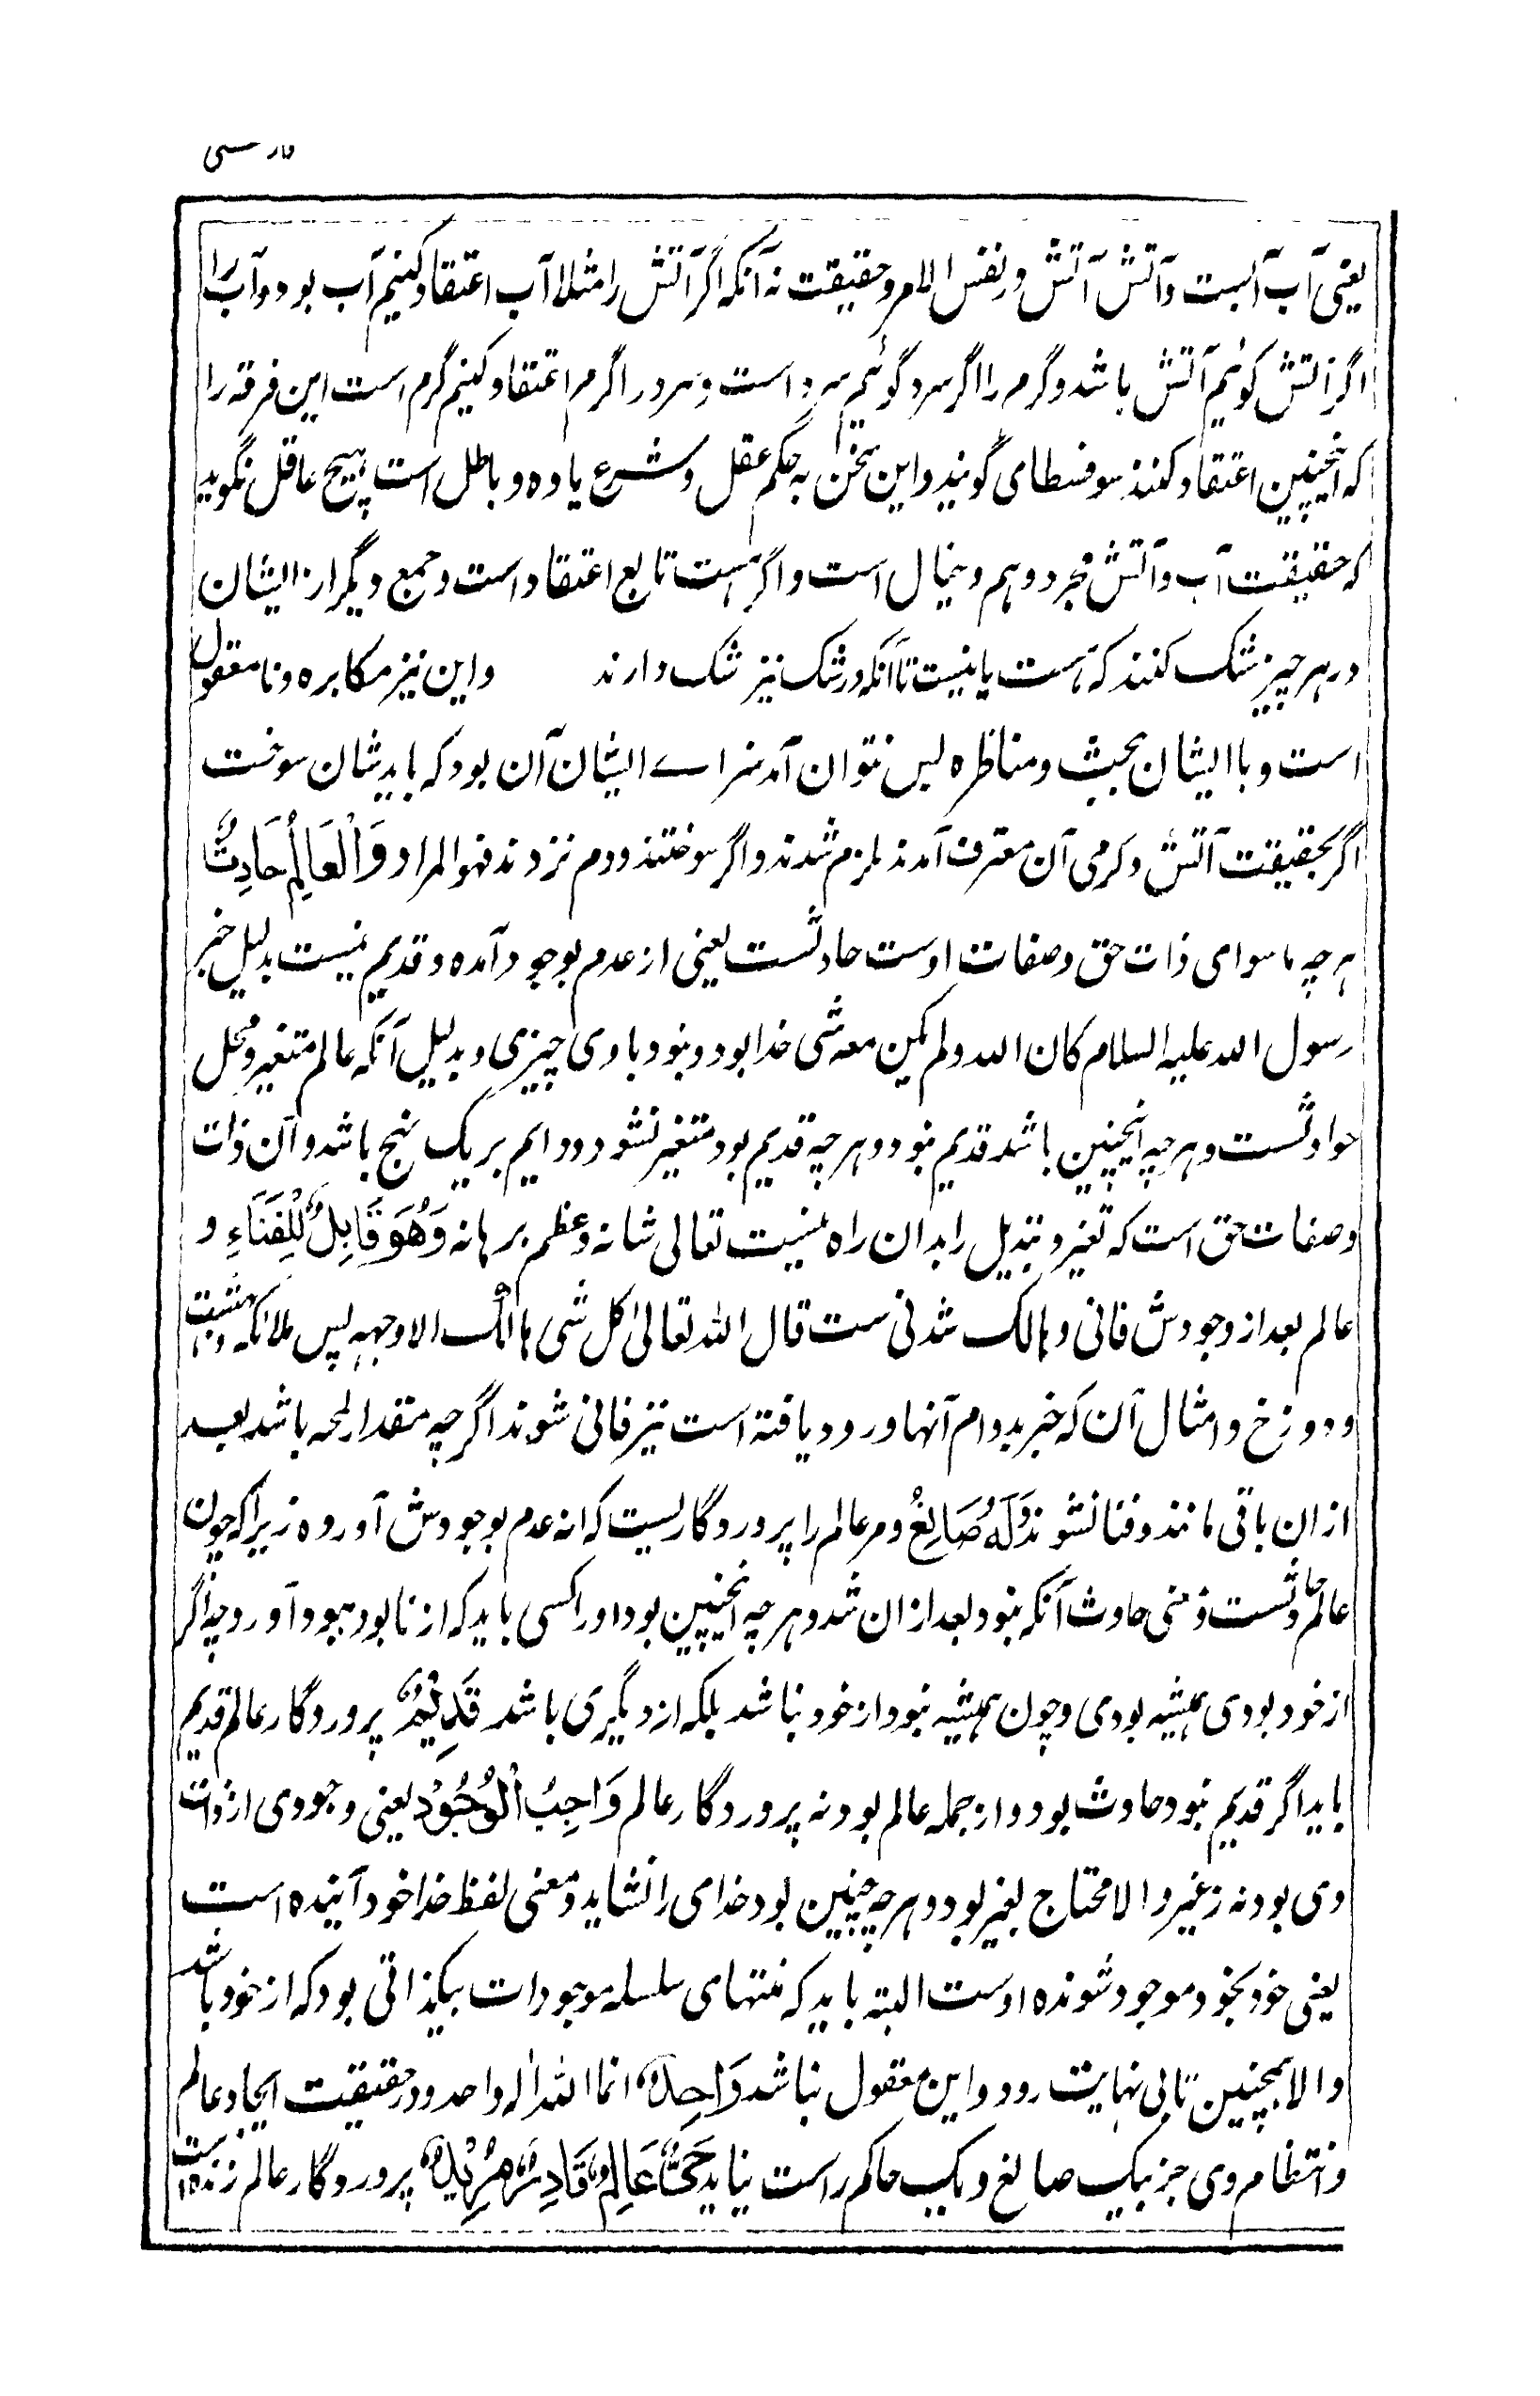 فارسی
یعنی آب آبست وآتش آتش ورنفس الامر وحقیقت نه آنکه اگر آتش را مثلا آب اعتقاد کنیم آب بود وآب را
اگر آتش گوئیم آتش باشد وگرم را اگر سرد گوئیم سرد است وسرد را گرم اعتقاد کنیم گرم است این فرقه را
که اینچنین اعتقاد کنند سوفسطای گویند واین سخن به حکم عقل وشرع یاوه وباطل است هیچ عاقل نگوید
که حقیقت آب وآتش مجرد وهم وخیال است واگر هست تابع اعتقاد است وجمع دیگر از ایشان
در هر چیز شک کنند که هست یا نیست تا آنکه در شک نیز شک دارند واین نیز مکابره ونامعقول
است وبا ایشان بحث ومناظره پس نتوان آمد سزاے ایشان آن بود که باید شان سوخت
اگر بحقیقت آتش وگرمی آن معترف آمدند ملزم شدند واگر سوختند ودم نزدند فهو المراد وَالْعَالَمُ حَادِثٌ
هر چه ماسوای ذات حق وصفات اوست حادثست یعنی از عدم بوجود آمده وقدیم نیست بدلیل خبر
رسول الله علیه السلام کان الله ولم یکن معه شی خدا بود ونبود با وی چیزی وبدلیل آنکه عالم متغیر ومحل
حوادثست وهر چه اینچنین باشد قدیم نبود وهر چه قدیم بود متغیر نشود ودایم بر یک نهج باشد وآن ذات
وصفات حق است که تغیر وتبدیل را بدان راه نیست تعالی شانه وعظم برهانه وَهُوَ قَابِلٌ لِلْفَنَاءِ و
عالم بعد از وجودش فانی وهالک شدنی ست قال الله تعالیٰ کل شی هالک الا وجهه پس ملائکه وبهشت
ودوزخ وامثال آن که خبر بدوام آنها ورود یافته است نیز فانی شوند اگر چه مقدار لمحه باشد بعد
از ان باقی مانند وفنا نشوند وَلَهُ صَانِعٌ ومر عالم را پروردگاریست که از عدم بوجودش آورده زیرا که چون
عالم حادثست ومعنی حادث آنکه نبود بعد از ان شد وهر چه اینچنین بود او را کسی باید که از نابود ببود آورد چه اگر
از خود بودی همیشه بودی وچون همیشه نبود از خود نباشد بلکه از دیگری باشد قَدِیْمٌ پروردگار عالم قدیم
باید اگر قدیم نبود حادث بود واز جمله عالم بود نه پروردگار عالم وَاجِبُ الْوُجُوْدِ یعنی وجودی از ذات
وی بود نه ز غیر والا محتاج بغیر بود وهر چه چنین بود خدای را نشاید ومعنی لفظ خدا خود آینده است
یعنی خود بخود موجود شونده اوست البته باید که منتهای سلسله موجودات بیکذاتی بود که از خود باشد
والا همچنین تا بی نهایت رود واین معقول نباشد وَاحِدٌ انما الله اله واحد ودر حقیقت ایجاد عالم
وانتظام وی جز بیک صانع ویک حاکم راست نیاید حَیٌّ عَالِمٌ قَادِرٌ مُرِیْدٌ پروردگار عالم زنده است